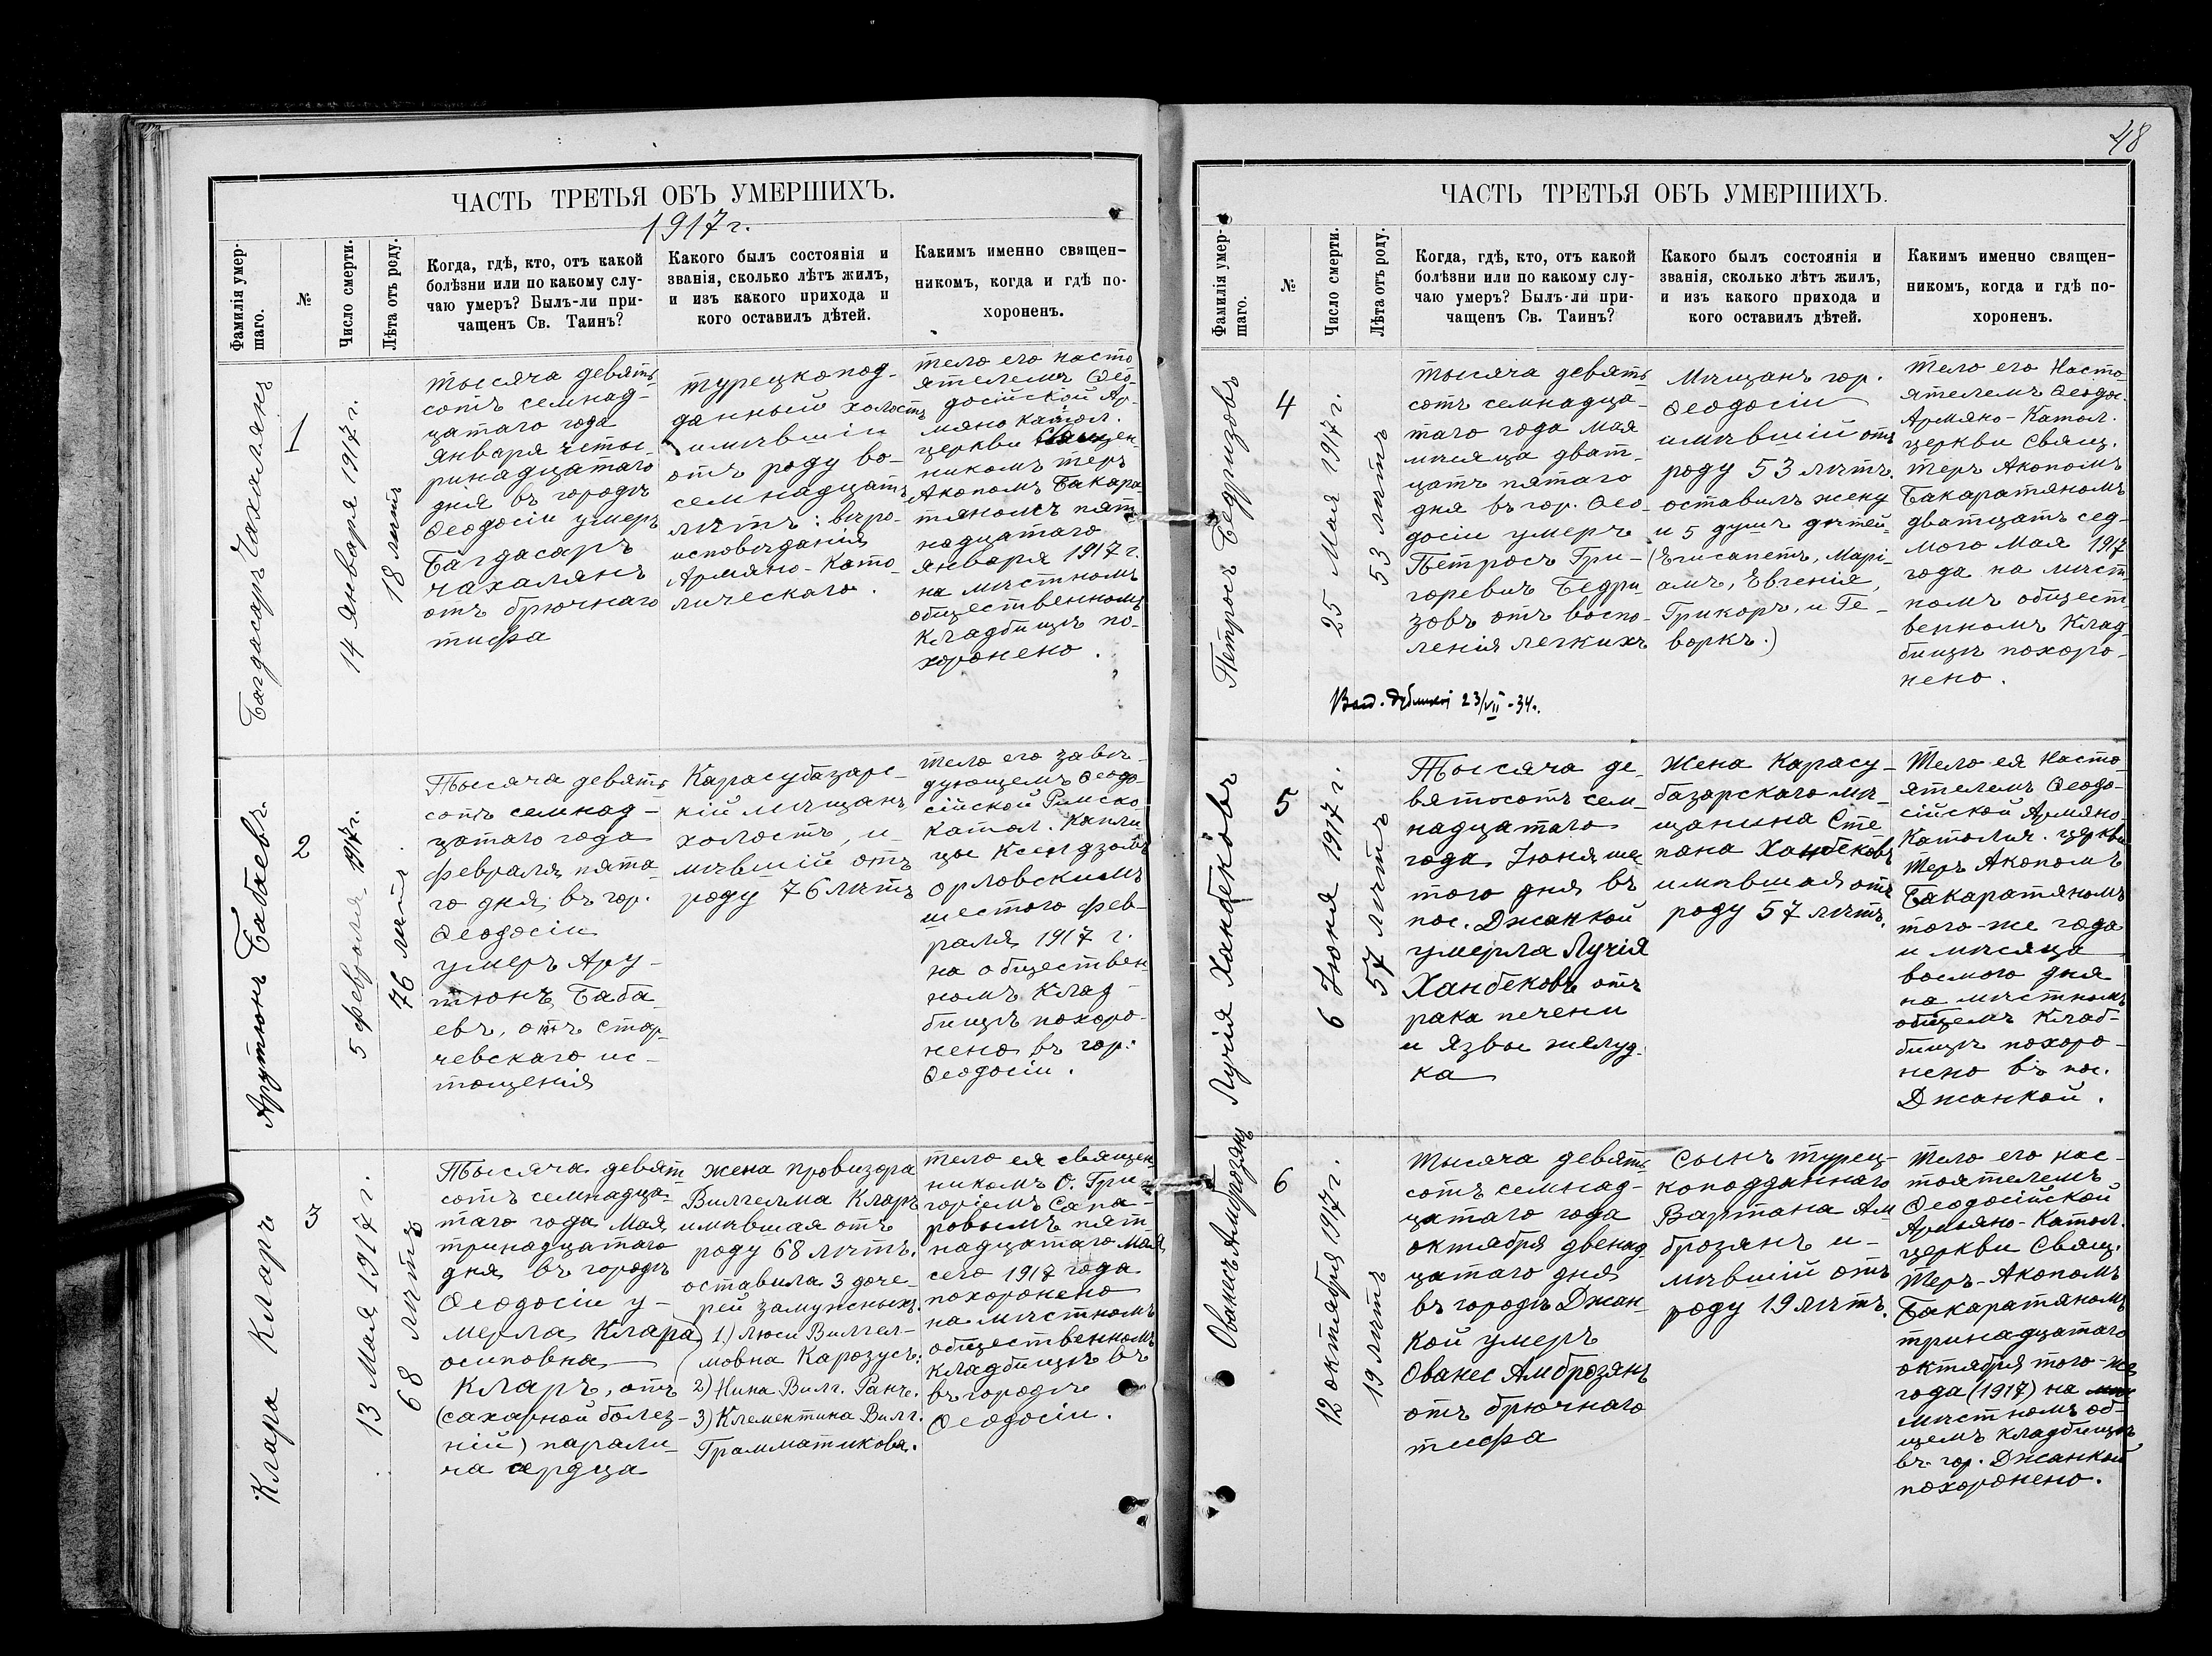 48
ЧАСТЬ ТРЕТЬЯ ОБЪ УМЕРШИХЪ.
1917 г.
Фамилія умер-
шаго.
№
Число смерти.
Лѣта отъ роду.
Когда, гдѣ, кто, отъ какой
болѣзни или по какому слу-
чаю умеръ? Былъ-ли при-
чащенъ Св. Таинъ?
Какого былъ состоянія и
званія, сколько лѣтъ жилъ,
и изъ какого прихода и
кого оставилъ дѣтей.
Какимъ именно священ-
никомъ, когда и гдѣ по-
хороненъ.
Багдасаръ Чахалянъ
1
14 Января 1917 г.
18 лѣтъ
тысяча девять
сотъ семнад-
цатаго года
Января четы-
ринадцатаго
дня въ городѣ
Ѳеодосіи умеръ
Багдасаръ
Чахалянъ
отъ брючнаго
тифа
турецкопод-
данный холостъ
имѣвшіи
отъ роду во-
семнадцать
лѣтъ: вѣро-
исповѣданія
Армяно-Като-
лическаго.
тело его насто
ятелемъ Ѳео-
досійской Ар-
мяно катол.
церкви Священ-
никомъ теръ
Акопомъ Бакара-
тяномъ пят-
надцатаго
января 1917 г.
на мѣстномъ
общественномъ
Кладбищѣ по-
хоронено.
Арутюнъ Бабаевъ
2
5 февраля 1917 г.
76 лѣтъ.
Тысяча девять
сотъ семнад-
цатаго года
февраля пята-
го дня въ гор.
Ѳеодосіи
умеръ Ару-
тюнъ Баба-
евъ, отъ стар-
чевскаго ис-
тощенія
Карасубазарс-
кій мѣщанъ
холостъ, и-
мѣвшій отъ
роду 76 лѣтъ
тело его завѣ-
дующемъ Ѳеодо-
сійской Римско
катол. Капли
цы Ксендзомъ
Орловскимъ
шестого фев-
раля 1917 г.
на обществен
номъ Клад-
бищѣ похоро-
нено въ гор.
Ѳеодосіи.
Клара Кларъ
3
13 Мая 1917 г.
68 лѣтъ
Тысяча девят
сотъ семнадца-
таго года Мая
тринадцатаго
дня въ городѣ
Ѳеодосіи у-
мерла Клара
осиповна
Кларъ, отъ
(сахарной болез-
ній) парали-
ча сердца
жена провизора
Вилгелма Кларъ
имѣвшая отъ
роду 68 лѣтъ.
оставила 3 доче-
рей замужныхъ.
1.) Люси Вилгел-
мовна Карозусъ:
2) Нина Вилг. Ранч.
3) Клементина Вилг.
Грамматикова.
тело ея священ
никомъ О. Гри-
горіемъ Сапа-
ровымъ пят-
надцатаго мая
сего 1917 года
похоронено
на мѣстномъ
общественномъ
кладбищѣ въ
въ городѣ
Ѳеодосіи.
ЧАСТЬ ТРЕТЬЯ ОБЪ УМЕРШИХЪ.
Фамилія умер-
шаго.
№
Число смерти.
Лѣта отъ роду.
Когда, гдѣ, кто, отъ какой
болѣзни или по какому слу-
чаю умеръ? Былъ-ли при-
чащенъ Св. Таинъ?
Какого былъ состоянія и
званія, сколько лѣтъ жилъ,
и изъ какого прихода и
кого оставилъ дѣтей.
Какимъ именно священ-
никомъ, когда и гдѣ по-
хороненъ.
Петросъ Бедризовъ
4
25 Мая 1917 г.
53 лѣтъ
тысяча девять
сотъ семнадца-
таго года мая
мѣсяца дват-
цать пятаго
дня въ гор. Ѳео-
досіи умеръ
Петросъ Гри-
горевичъ Бедри
зовъ отъ воспо-
ленія легкихъ
Мѣщанъ гор.
Ѳеодосіи
имѣвшій отъ
роду 53 лѣтъ.
оставилъ жену
и 5 душъ дѣтей
(Егисапетъ, Марі-
амъ, Евгенія,
Грикоръ, и Ге-
воркъ.)
Тело его Насто-
ятелемъ Ѳеодос.
Армяно-Катол.
церкви Свящ.
теръ Акопомъ
Бакаратяномъ
дватцать сед-
мого мая 1917
года на мѣст
номъ общест-
венномъ Клад-
бищѣ похоро-
нено.
23/VII-34.
Лучія Ханбековъ
5
6 Іюня 1917 г.
57 лѣтъ
Тысяча де-
вятьсотъ сем-
надцатаго
года Іюня шес
того дня въ
пос. Джанкой
умерла Лучія
Ханбековъ отъ
рака печени
и язвы желуд-
ка
Жена Карасу-
базарскаго мѣ-
щанина Сте
пана Ханбековъ
имѣвшая отъ
роду 57 лѣтъ.
Тело ея Насто-
ятелемъ Ѳеодо-
сійской Армяно-
Католич. церкви
Теръ Акопомъ
Бакаратяномъ
того-же года
и мѣсяца
восмого дня
на мѣстномъ
общемъ Клад-
бищѣ похоро-
нено въ пос.
Джанкой.
Ованесъ Амброзянъ
6
12 октября 1917 г.
19 лѣтъ
тысяча девять
сотъ семнад-
цатаго года
октября двенад-
цатаго дня
въ городѣ Джан-
кой умеръ
Ованес Амброзянъ
отъ брючнаго
тифа
Сынъ турец-
коподданнаго
Вартана Ам
брозянъ и-
мѣвшій отъ
роду 19 лѣтъ.
Тело его нас-
тоятелемъ
Ѳеодосійской
Армяно-Катол.
церкви Свящ.
Теръ-Акопомъ
Бакаратяномъ
тринадцатаго
октября того-же
года (1917) на
мѣстномъ об-
щемъ кладбищѣ
въ гор. Джанкой
похоронено.